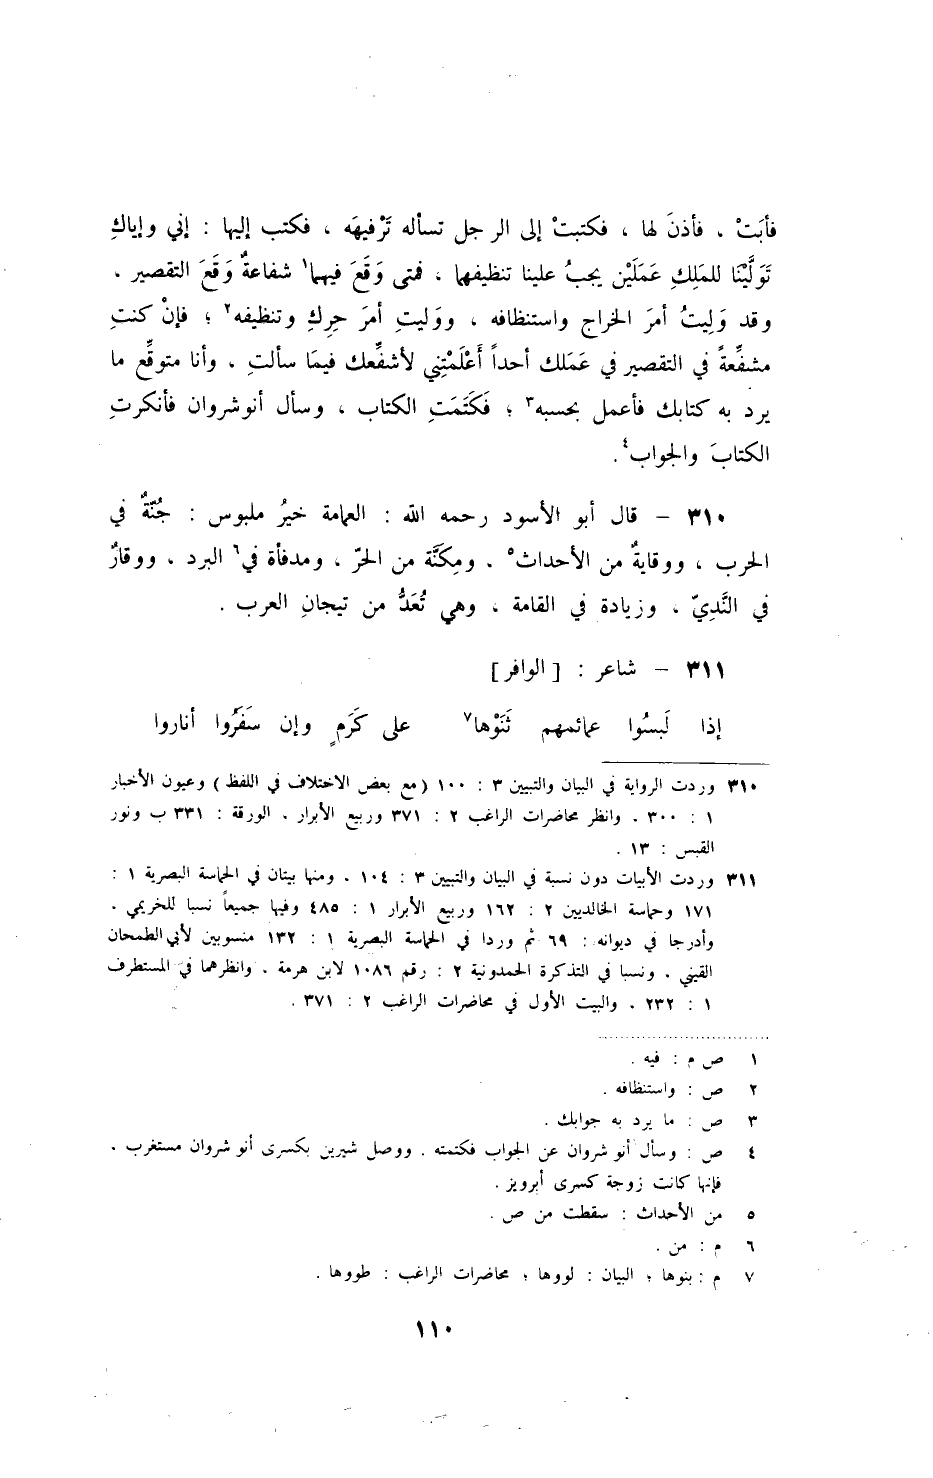 فأبَتْ . فأذنَ لها ، فكتبتْ إلى الرجل تسأله تَرْفيهَه ، فكتب إليها : إني وإياكِ
تَوَلَّيْنا للمَلِكِ عَمَلَيْن يجبُ علينا تنظيفهما ، فمتى وَقَعَ فيهما١ شفاعةٌ وَقَعَ التقصير .
وقد وَلِيتُ أمرَ الخراج واستنظافه ، ووَليتِ أمرَ حِرِكِ وتنظيفه٢ ؛ فإنْ كنتِ
مشفِّعةً في التقصير في عَمَلك أحداً أَعْلَمْتِني لأشفِّعك فيمَا سألتِ . وأنا متوقِّع ما
يرد به كتابك فأعمل بحسبه٣ ؛ فَكَتَمَتِ الكتاب ، وسأل أنوشروان فأنكرتِ
الكتابَ والجواب٤.
٣١٠ – قال أبو الأسود رحمه الله : العمامة خيرُ ملبوس : جُنّةٌ في
الحرب ، ووقايةٌ من الأحداث٥ . ومِكَنَّة من الحرّ ، ومدفأة في٦ البرد ، ووقارٌ
في النَّدِيّ ، وزيادة في القامة ، وهي تُعَدُّ من تيجانِ العرب .
٣١١ – شاعر : [ الوافر]
إذا لَبسُوا عمائمهم ثَنَوْها٧ على كَرَمٍ وإن سَفَرُوا أناروا
٣١٠ وردت الرواية في البيان والتبيين ٣ : ١٠٠ (مع بعض الاختلاف في اللفظ ) وعيون الأخبار
١ : ٣٠٠ . وانظر محاضرات الراغب ٢ : ٣٧١ وربيع الأبرار . الورقة : ٣٣١ ب ونور
القبس : ١٣ .
٣١١ وردت الأبيات دون نسبة في البيان والتبيين ٣ : ١٠٤ . ومنها بيتان في الحماسة البصرية ١ :
١٧١ وحماسة الخالديين ٢ : ١٦٢ وربيع الأبرار ١ : ٤٨٥ وفيها جميعاً نسبا للخريمي .
وأدرجا في ديوانه : ٦٩ ثم وردا في الحماسة البصرية ١ : ١٣٢ منسوبين لأبي الطمحان
القيني . ونسبا في التذكرة الحمدونية ٢ : رقم ١٠٨٦ لابن هرمة . وانظرهما في المستطرف
١ : ٢٣٢ . والبيت الأول في محاضرات الراغب ٢ : ٣٧١ .
١ ص م : فيه .
٢ ص : واستنظافه .
٣ ص : ما يرد به جوابك .
٤ ص : وسأل أنو شروان عن الجواب فكتمته . ووصل شيرين بكسرى أنو شروان مستغرب .
فإنها كانت زوجة كسرى أبرويز .
٥ من الأحداث : سقطت من ص .
٦ م : من .
٧ م : بنوها ؛ البيان : لووها ؛ محاضرات الراغب : طووها .
١١٠